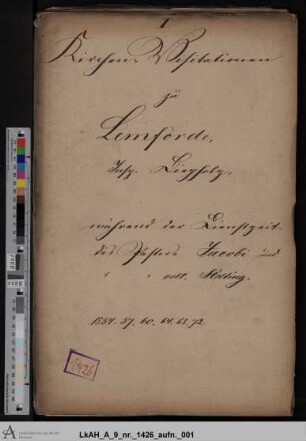 I
Kirchen-Visitationen
zu
Lemförde,
Insp. Diepholz,
während der Dienstzeit
des Pastors Jacobi und
" " coll.
1854. 57. 60. 64. 68. 72.
1426
LkAH_A_9_nr._1426_aufn._001